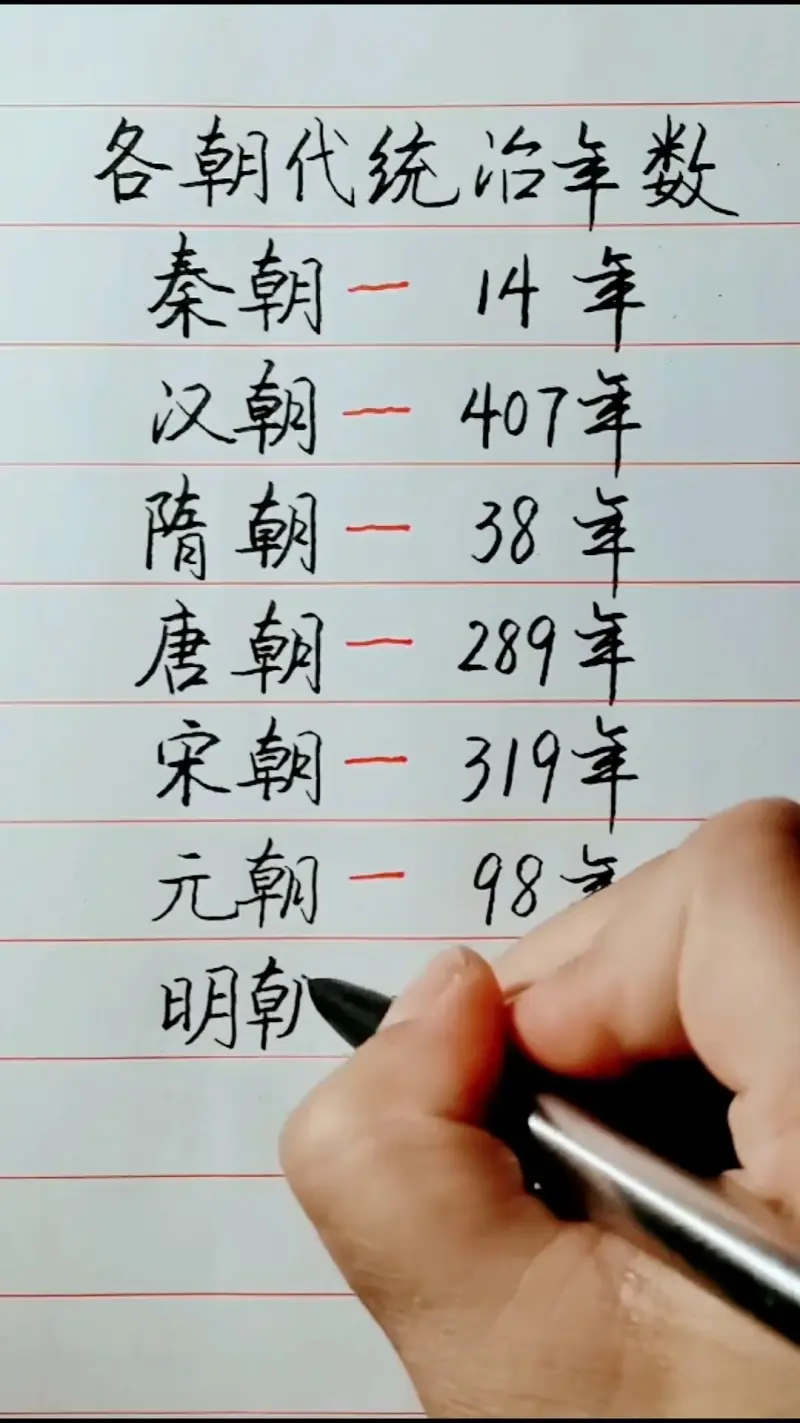 各朝代统治年数
秦朝一 14年
汉朝一 407年
隋朝一 38年
唐朝一 289年
宋朝一 319年
元朝一 98年
明朝